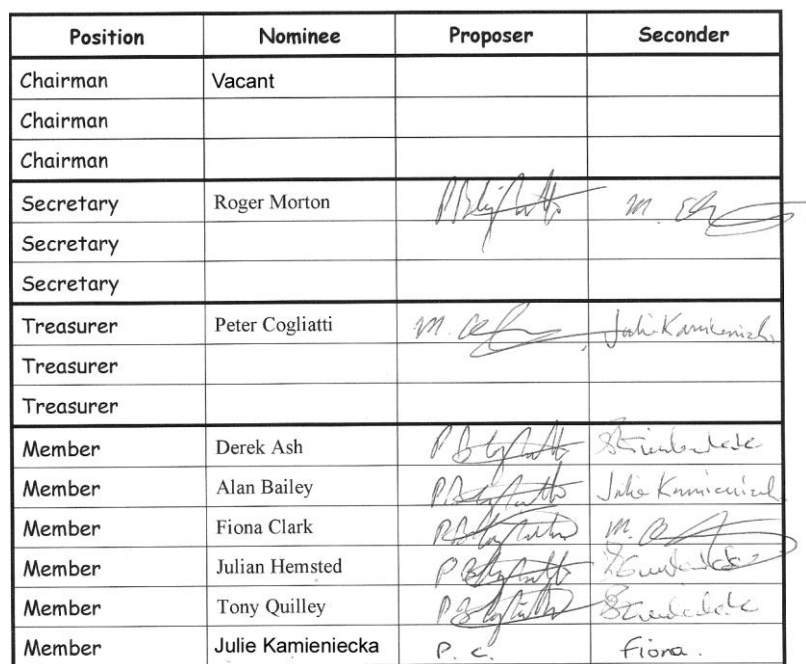 Position Nominee Proposer Seconder
Chairman Vacant
Chairman
Chairman
Secretary Roger Morton M.
Secretary
Secretary
Treasurer Peter Cogliatti M. Julie Kamieniecka
Treasurer
Treasurer
Member Derek Ash
Member Alan Bailey Julie Kamieniecka
Member Fiona Clark M.
Member Julian Hemsted
Member Tony Quilley
Member Julie Kamieniecka P. C. Fiona.